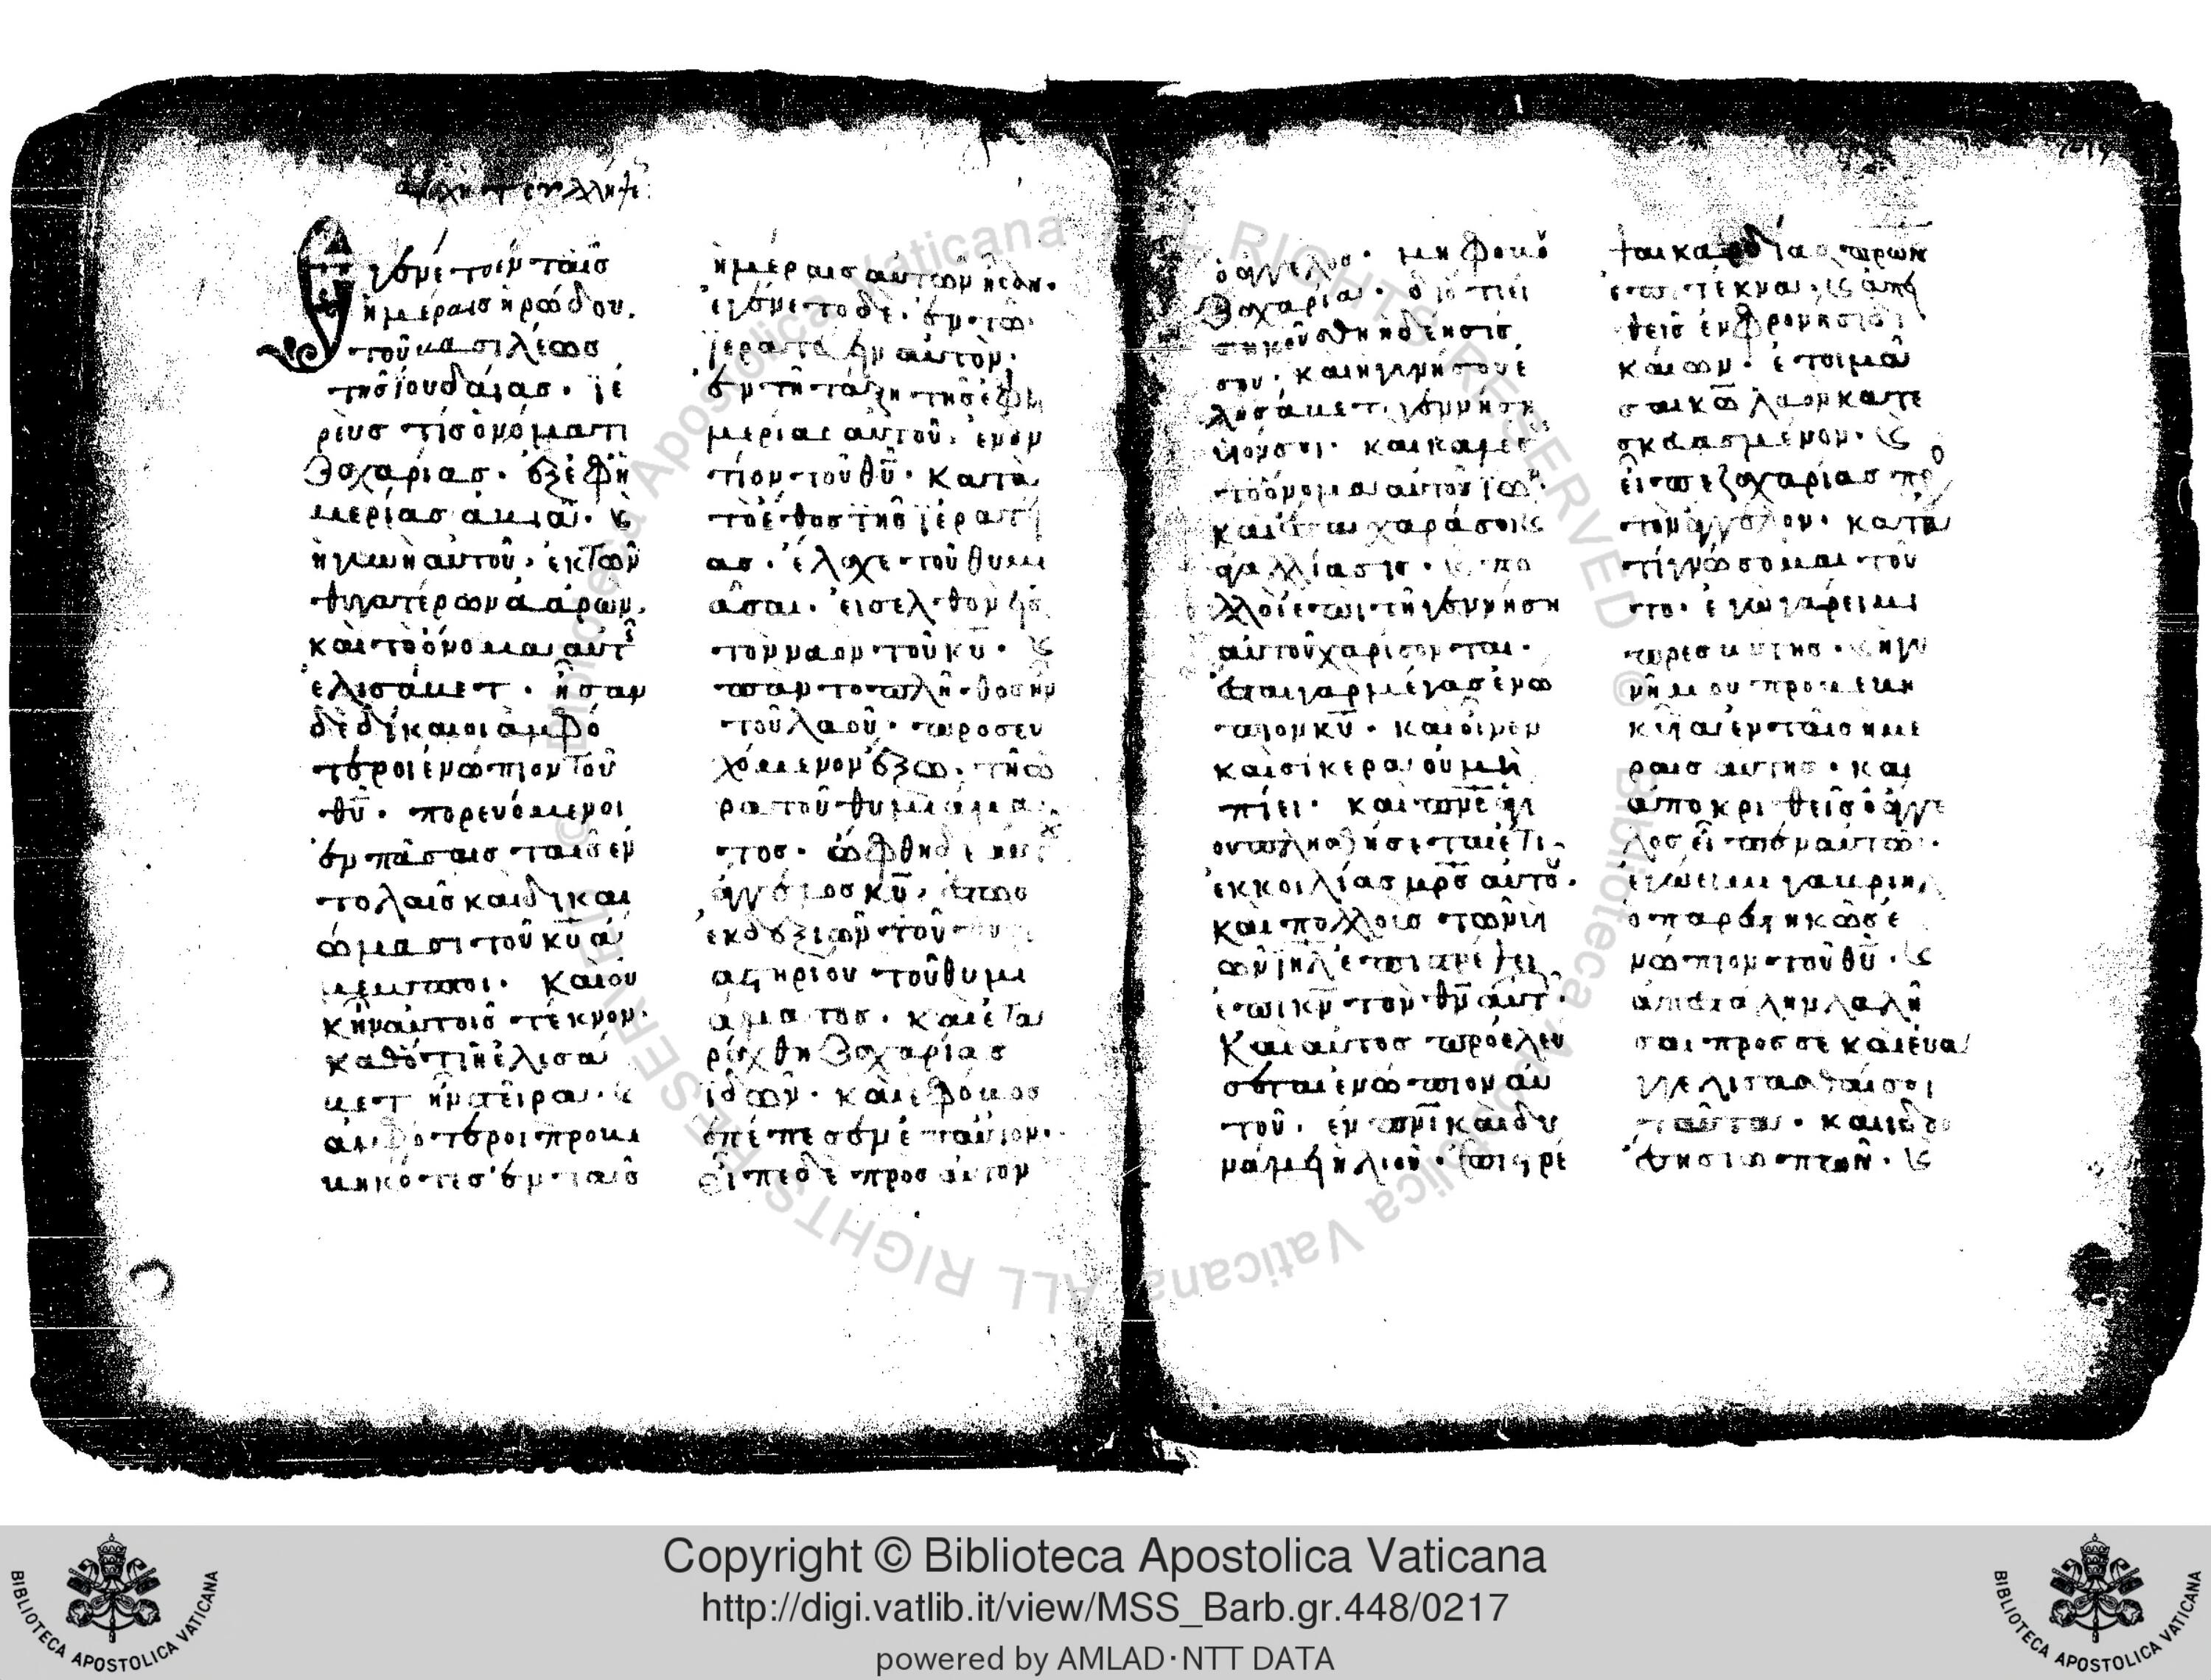 Ἐγένετο ἐν ταῖς
ἡμέραις ἡρώδου.
τοῦ βασιλέως
τῆς ἰουδαίας. ἱε
ρεὺς τὶς ὀνόματι
Ζαχαρίας. ἐξ ἐφη
μερίας ἀβιᾶ. κ
ἡ γυνὴ αὐτοῦ, ἐκ τῶν
θυγατέρων ἀαρών.
καὶ τὸ ὄνομα αὐτῆ
ἐλισάβετ. ἦσαν
δὲ δίκαιοι ἀμφό
τεροι ἐνώπιον τοῦ
θῦ. πορευόμενοι
ἐν πάσαις ταῖς ἐν
τολαῖς καὶ δικαι
ώμασι τοῦ κῦ ἄ
μεμπτοι. καὶ οὐ
κ ἦν αὐτοῖς τέκνον.
καθότι ἡ ἐλισά
βετ ἦν στεῖρα. κ
ἀμφότεροι προβε
βηκότες ἐν ταῖς
ἡμέραις αὐτῶν ἦσαν.
ἐγένετο δὲ. ἐν τῶ
ἱερατεύειν αὐτὸν.
ἐν τῆ τάξη τῆς ἐφη
μερίας αὐτοῦ, ἐναν
τίον τοῦ θῦ. κατὰ
τὸ ἔθος τῆς ἱερατεί
ας. ἔλαχε τοῦ θυμι
ᾶσαι. εἰσελθὸν εἰς
τὸν ναὸν τοῦ κῦ. κ
πᾶν το πλῆθος ἦν
τοῦ λαοῦ. προσευ
χόμενον ἔξω. τῆ ὥ
ρα τοῦ θυμιάμα
τος. ὤφθη δὲ αὐτῶ
ἄγγελος κῦ, ἑστὼς
ἐκ δεξιῶν τοῦ θυσι
αστηρίου τοῦ θυμι
άματος. καὶ ἐτα
ράχθη Ζαχαρίας
ἰδών. καὶ φόβος
ἐπέπεσεν ἐπ αὐτὸν.
εἶπε δὲ πρὸς αὐτὸν
ὁ ἄγγελος. μὴ φοβοῦ
Ζαχαρία. διότι εἰ
σηκούσθη ἡ δέησίς
σου. καὶ ἡ γυνή σου ἐ
λισάβετ γεννήση
υἱόν σοι. καὶ καλέσεις
τὸ ὄνομα αὐτοῦ ἰωην
καὶ ἔσται χαρά σοι κ
ἀγαλλίασις. κ πο
λλοὶ ἐπι τῆ γεννήση
αὐτοῦ χαρίσονται.
ἔσται γὰρ μέγας ἐνώ
πιον κῦ. καὶ οἶνον
καὶ σίκερα οὐ μὴ
πίει. καὶ πνς ἁγί
ου πλησθήσεται ἔτι
ἐκ κοιλίας μρς αὐτοῦ.
καὶ πολλοὺς τῶν υἱ
ῶν ιηλ ἐπιστρέψει
ἐπι κν τὸν θν αὐτῶν.
Καὶ αὐτὸς προελεύ
σεται ἐνώπιον αὐ
τοῦ. ἐν πνι καὶ δυ
νάμη ἡλιοῦ. ἐπιστρέ
ψαι καρδίας πρων
ἐπι τέκνα, κ ἀπει
θεῖς ἐν φρονήσι δι
καίων. ἑτοιμᾶ
σαι κω λαὸν κατε
σκευασμένον. κ
εἶπε ζαχαρίας πρὸ
τὸν ἄγγελον. κατα
τί γνώσομαι τοῦ
το. ἐγὼ γάρ εἰμι
πρεσβύτης. κ ἡ γυ
νή μου προβεβη
κυῖα ἐν ταῖς ἡμέ
ραις αὐτῆς. καὶ
ἀποκριθεὶς ὁ ἄγγε
λος εἶπεν αὐτῶ.
ἐγώ εἰμι γαβριὴλ
ὁ παρεστηκὼς ἐ
νώπιον τοῦ θῦ. κ
ἀπεστάλην λαλῆ
σαι προς σε καὶ εὐα
γγελίσασθαί σοι
ταῦτα. καὶ ἰδοὺ
ἔση σιωπῶν. κ
Copyright © Biblioteca Apostolica Vaticana
http://digi.vatlib.it/view/MSS_Barb.gr.448/0217
powered by AMLAD·NTT DATA
BIBLIOTECA APOSTOLICA VATICANA
BIBLIOTECA APOSTOLICA VATICANA